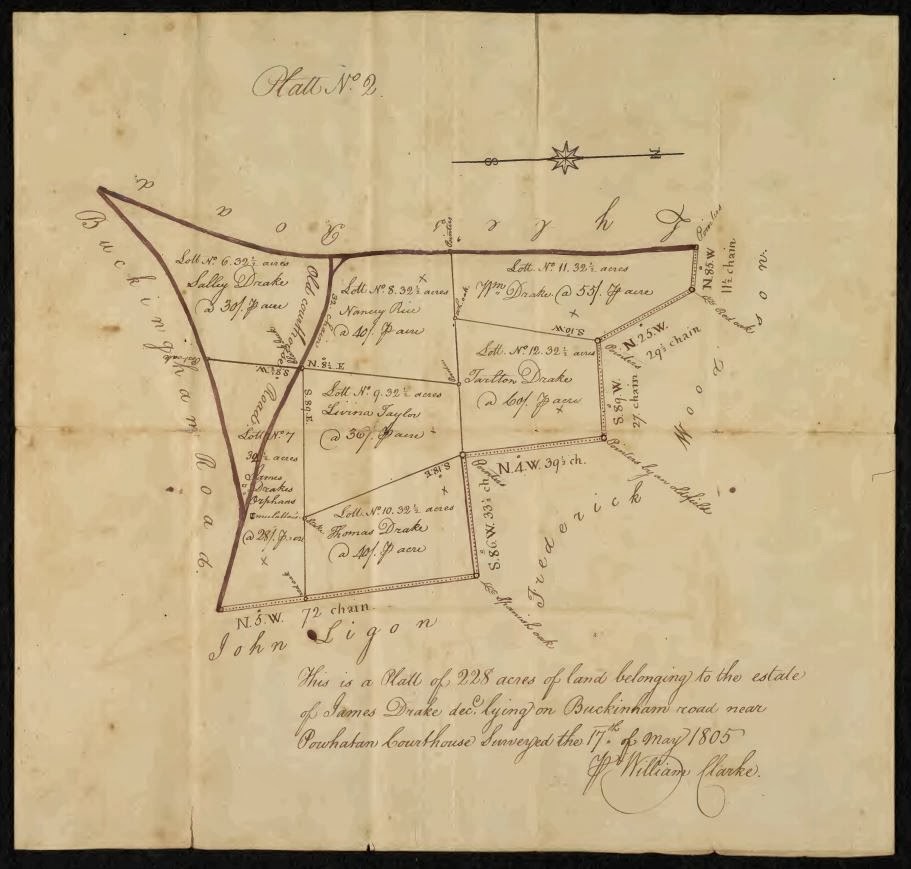 Platt No. 2
S
N
Buckingham Road.
Fyers Road.
Pointers
Pointers
N. 85. W
11½ chain
Red oak
N. 25. W.
29½ chain
Pointers
S. 89. W.
27 chain
Pointers by an oldfield
Woodson.
Frederick
N. 4. W. 39½ ch.
Pointers
S. 86. W. 33½ ch.
Spanish oak
N. 5. W. 72 chain.
John Ligon
Lott No. 6. 32½ acres
Salley Drake
@ 30/. P acre
Old courthouse Road
32 chains
Lott No. 8. 32½ acres
Nancy Rice
@ 40/. P acre
Lott No. 11. 32½ acres
Wm. Drake @ 55/. P acre
S. 10. W.
Lott No. 12. 32½ acres
Tarlton Drake
@ 60/. P acre
N. 8½. E
S. 8½. W.
S. 89. E.
Lott No. 9. 32½ acres
Livina Taylor
@ 36/. P acre
Lott No. 7
acres
James
Drakes
Orphans
@ 28/. P acre
S. 18. E.
Lott No. 10. 32½ acres
Thomas Drake
@ 40/. P acre
Stake
This is a Platt of 228 acres of land belonging to the estate
of James Drake decd. lying on Buckinham road near
Powhatan Courthouse Surveyed the 17th. of May 1805
Pr William Clarke.